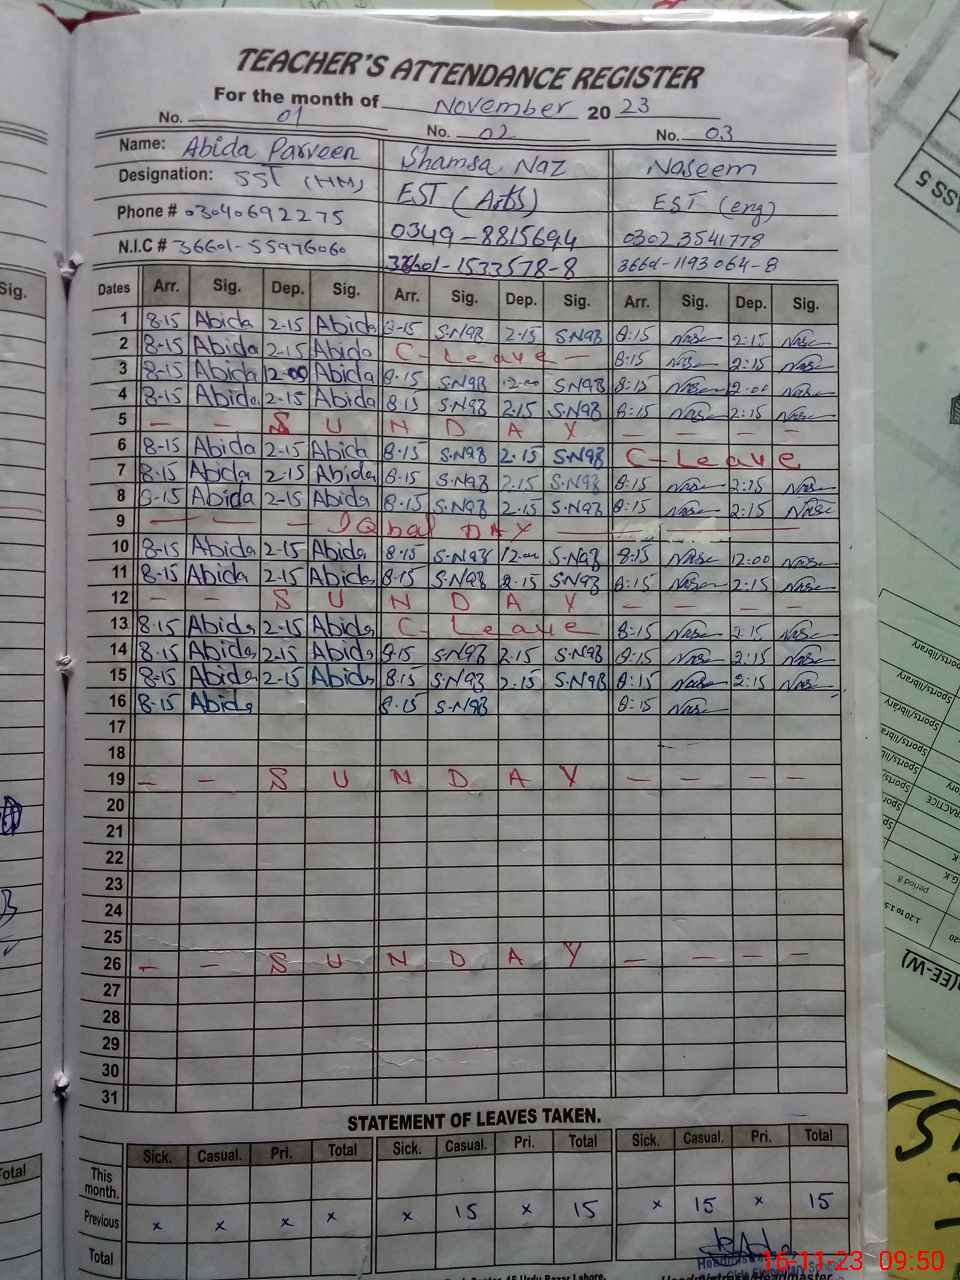 TEACHER'S ATTENDANCE REGISTER
For the month of November 2023
No. 01 No. 02 No. 03
Name: Abida Parveen Shamsa Naz Naseem
Designation: SST (HM) EST (Arts) EST (eng)
Phone # 03040692275 0349-8815694 03023541778
N.I.C # 36601-55976060 36601-1533578-8 36601-1193064-8
Dates Arr. Sig. Dep. Sig. Arr. Sig. Dep. Sig. Arr. Sig. Dep. Sig.
1 8-15 Abida 2-15 Abida 8-15 S.Naz 2.15 S.Naz 8:15 2:15
2 8-15 Abida 2-15 Abida C-Leave - 8:15 2:15
3 8-15 Abida 12-00 Abida 8.15 S.Naz 12-00 S.Naz 8:15 12-00
4 8-15 Abida 2-15 Abida 8.15 S.Naz 2.15 S.Naz 8:15 2:15
5 - - S U N D A Y - - - -
6 8-15 Abida 2-15 Abida 8.15 S.Naz 2.15 S.Naz C-Leave
7 8-15 Abida 2-15 Abida 8.15 S.Naz 2.15 S.Naz 8:15 2:15
8 8-15 Abida 2-15 Abida 8.15 S.Naz 2.15 S.Naz 8:15 2:15
9 - - - Iqbal DAY
10 8-15 Abida 2-15 Abida 8.15 S.Naz 12-00 S.Naz 8:15 12-00
11 8-15 Abida 2-15 Abida 8.15 S.Naz 2.15 S.Naz 8:15 2:15
12 - - S U N D A Y - - - -
13 8-15 Abida 2-15 Abida C-Leave 8:15 2:15
14 8-15 Abida 2-15 Abida 8.15 S.Naz 2.15 S.Naz 8:15 2:15
15 8-15 Abida 2-15 Abida 8.15 S.Naz 2.15 S.Naz 8:15 2:15
16 8-15 Abida 8.15 S.Naz 8:15
17
18
19 - - S U N D A Y - - - -
20
21
22
23
24
25
26 - - S U N D A Y - - - -
27
28
29
30
31
STATEMENT OF LEAVES TAKEN.
Sick. Casual. Pri. Total Sick. Casual. Pri. Total Sick. Casual. Pri. Total
This month.
Previous x x x x x 15 x 15 x 15 x 15
Total
16-11-23 09:50
Sig.
Total
CLASS 5
Sports/library
Sports/library
Sports/library
PRACTICE
period 8
(EE-W)